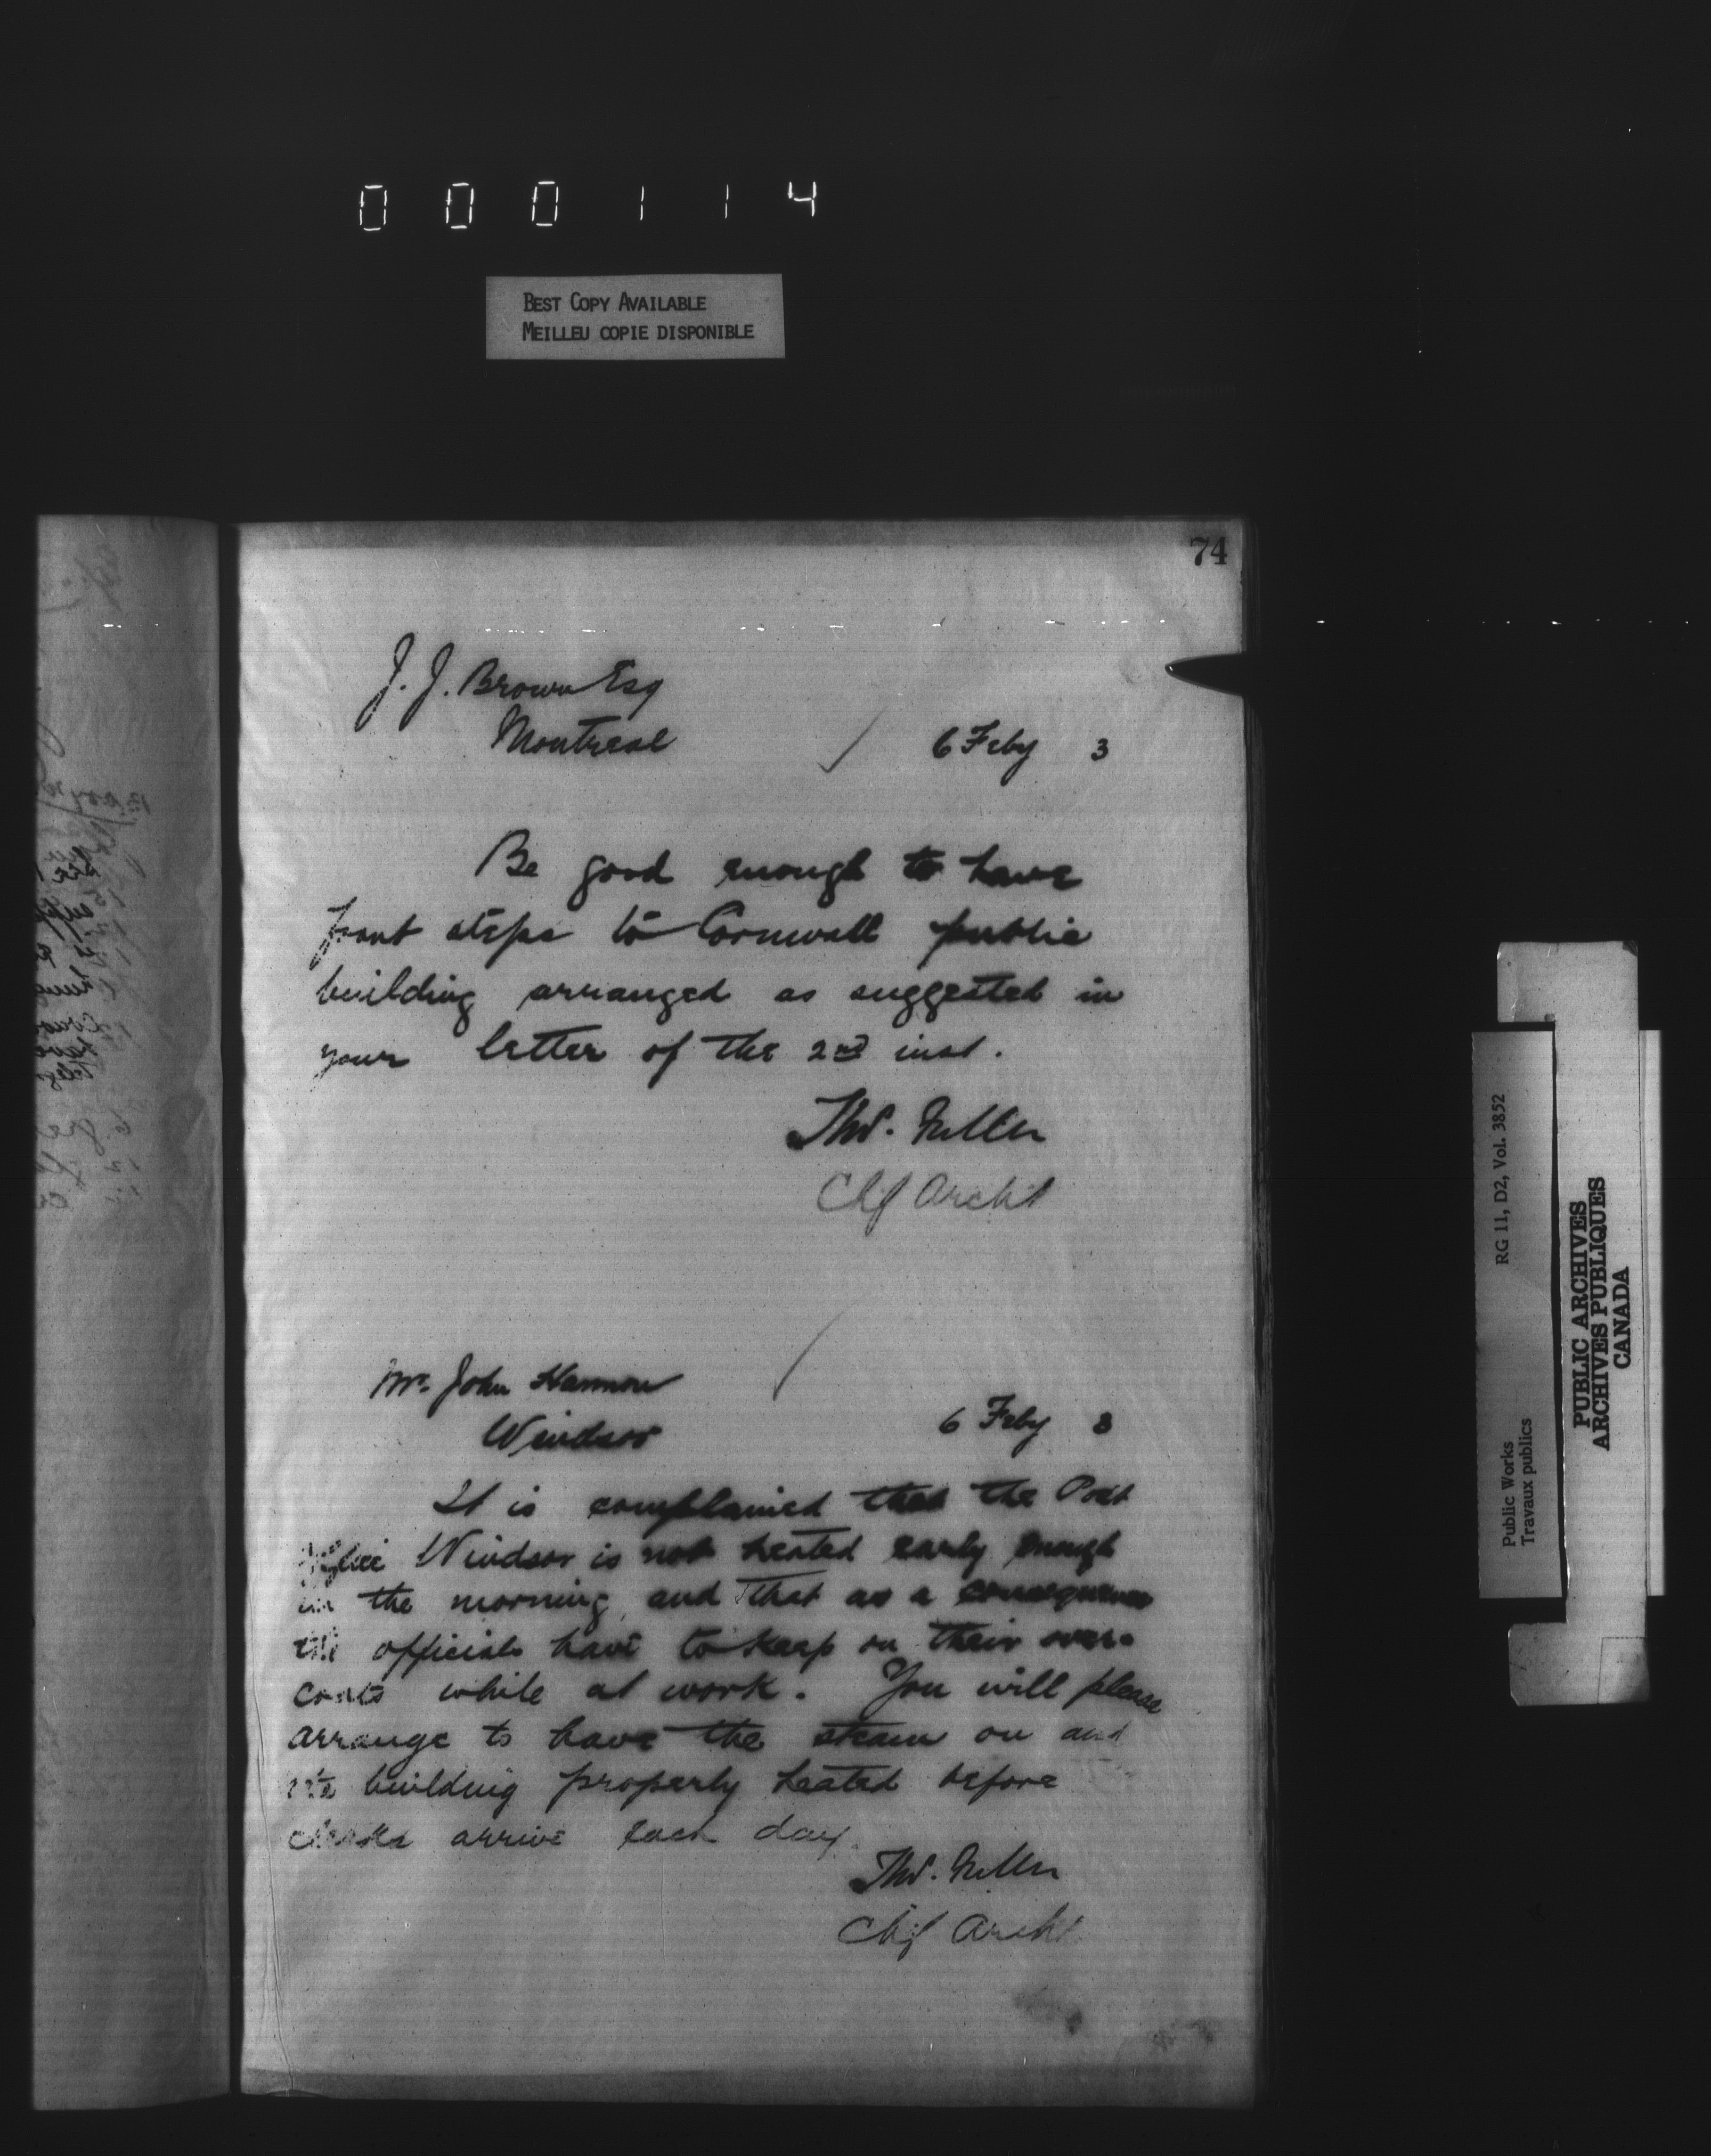 000114
BEST COPY AVAILABLE
MEILLEU COPIE DISPONIBLE
74
J. J. Brown Esq
Montreal
6 Feby 3
Be good enough to have
front steps to Cornwall public
building arranged as suggested in
your letter of the 2nd inst.
Thos. Fuller
Chf Archt
Mr. John Harmon
Windsor
6 Feby 3
It is complained that the Post
Office Windsor is not heated early enough
in the morning, and that as a consequence
the officials have to keep on their over-
coats while at work. You will please
arrange to have the steam on and
the building properly heated before
clerks arrive each day.
Thos. Fuller
Chf Archt
RG 11, D2, Vol. 3852
Public Works
Travaux publics
PUBLIC ARCHIVES
ARCHIVES PUBLIQUES
CANADA